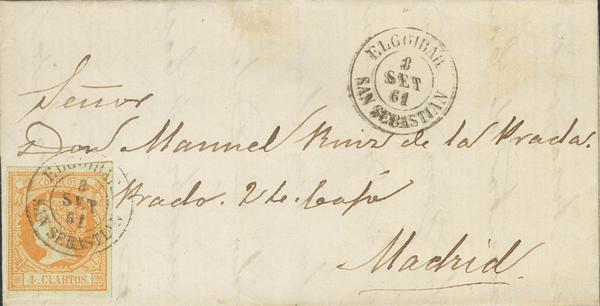 ELGOIBAR
8
SET
61
SAN SEBASTIAN
Señor
Don Manuel Ruiz de la Prada.
Prado. 2
Madrid.
ELGOIBAR
8
SET
61
SAN SEBASTIAN
CORREOS
4 CUARTOS.